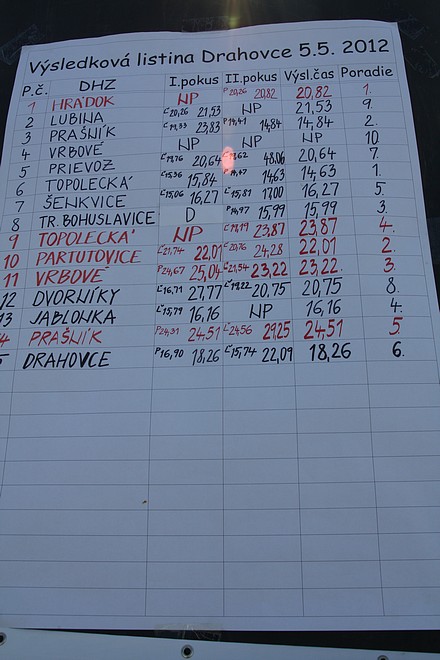 Výsledková listina Drahovce 5.5. 2012
P.č. DHZ I.pokus II.pokus Výsl.čas Poradie
1 HRÁDOK NP P20,26 20,82 20,82 1.
2 LUBINA Ľ20,26 21,53 NP 21,53 9.
3 PRAŠNÍK Ľ19,33 23,83 P14,41 14,84 14,84 2.
4 VRBOVÉ NP NP NP 10.
5 PRIEVOZ Ľ19,76 20,64 48,06 20,64 7.
6 TOPOLECKÁ Ľ15,36 15,84 14,63 14,63 1.
7 ŠENKVICE Ľ15,06 16,27 Ľ15,81 17,00 16,27 5.
8 TR. BOHUSLAVICE D P14,97 15,99 15,99 3.
9 TOPOLECKÁ NP Ľ19,19 23,87 23,87 4.
10 PARTUTOVICE Ľ21,74 22,01 Ľ20,76 24,28 22,01 2.
11 VRBOVÉ P24,67 25,04 Ľ21,54 23,22 23,22 3.
12 DVORNÍKY Ľ16,71 27,77 Ľ19,22 20,75 20,75 8.
13 JABLONKA Ľ15,79 16,16 NP 16,16 4.
4 PRAŠNÍK P24,31 24,51 Ľ24,56 29,25 24,51 5
5 DRAHOVCE P16,90 18,26 Ľ15,74 22,09 18,26 6.